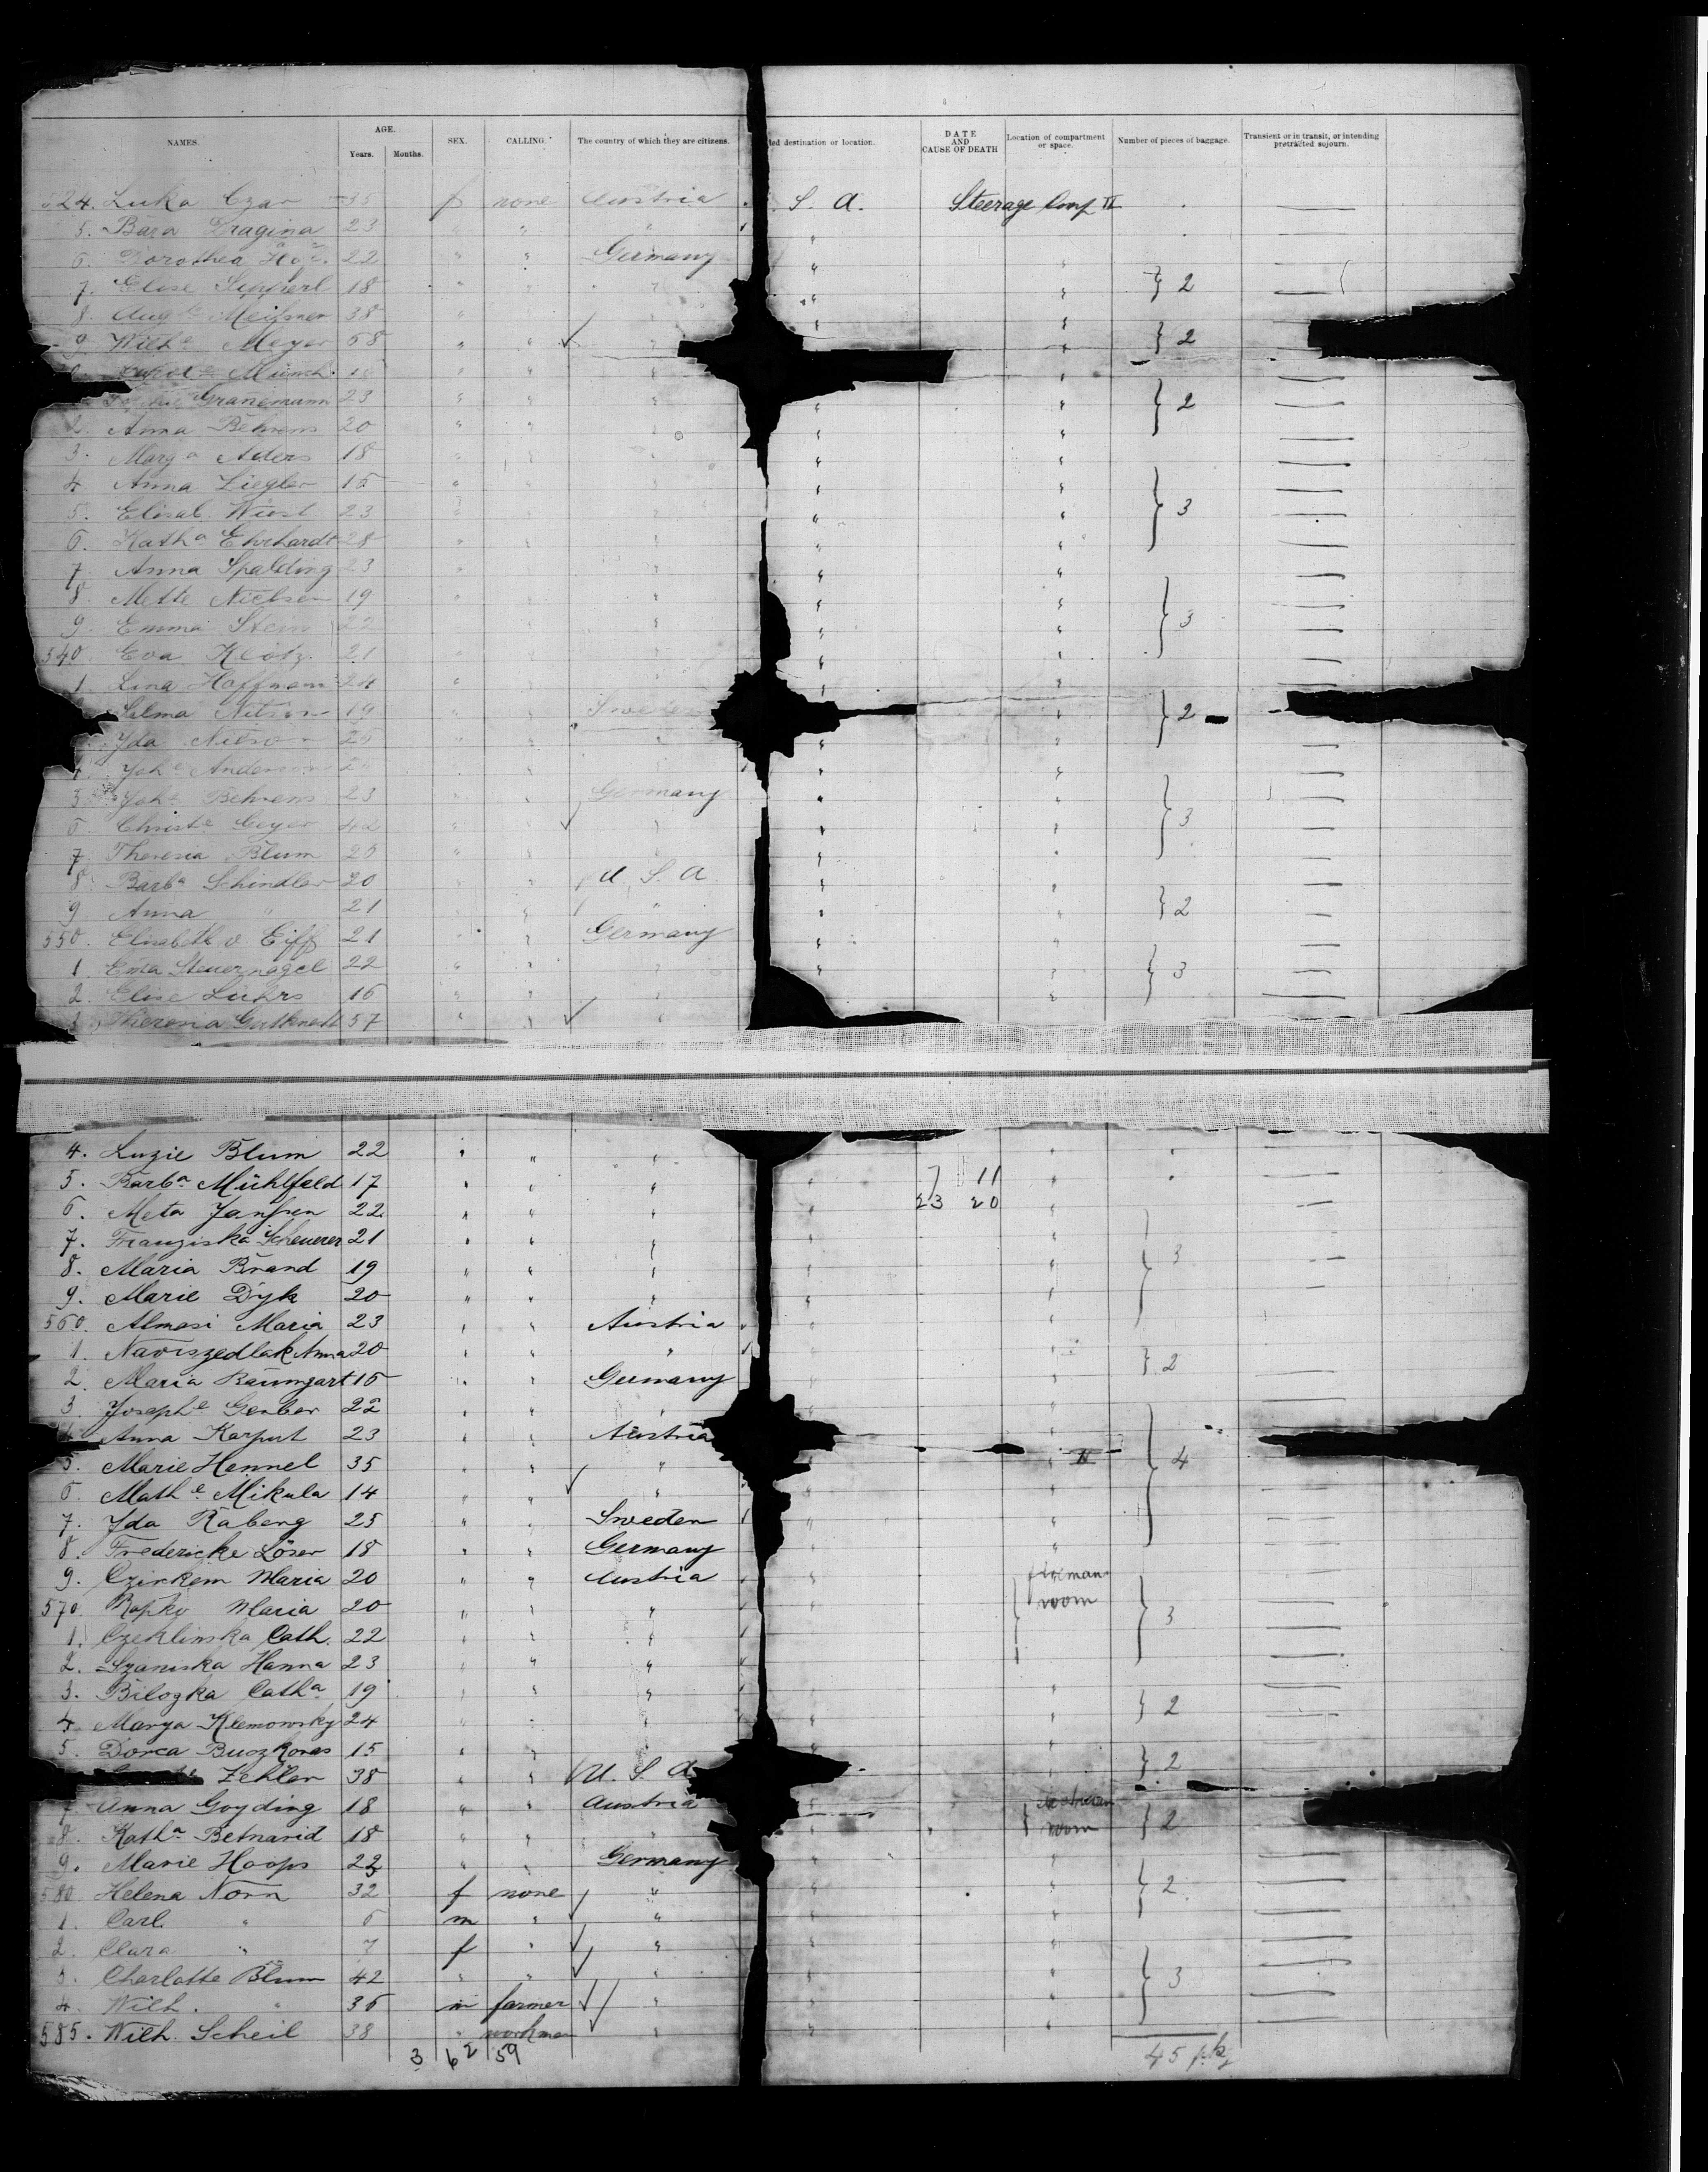 NAMES. AGE. Years. Months. SEX. CALLING. The country of which they are citizens. ted destination or location. DATE AND CAUSE OF DEATH Location of compartment or space. Number of pieces of baggage. Transient or in transit, or intending protracted sojourn.
24. Luka Czar 35 f none Austria S. A. Steerage Comp II
5. Bara Dragina 23 " " "
6. Dorothea 22 " " Germany "
7. Elise 18 " " " " } 2
8. Aug Meißner 38 " " "
9. Wilh a Meyer 68 " " " } 2
Münch 18 " " "
Granemann 23 " " " " } 2
2. Anna Behrens 20 " " " "
3. Marg a Aders 18 " " " "
4. Anna Ziegler 15 " " " "
5. Elisab. Wüst 23 " " " " } 3
6. Kath a Ehrhardt 28 " " " "
7. Anna Spalding 23 " " " "
8. Mette Nielsen 19 " " " "
9. Emma Stein 22 " " " " } 3
540. Eva Klotz 21 " " " "
1. Lina Hoffmann 24 " " " "
Selma 19 " " Sweden " } 2
Ida 25 " " " "
Joh e Anderson " " " "
5. Joh e Behrens 23 " " Germany "
6. Christ e Geyer 42 " " " " } 3
7. Theresia Blum 25 " " " "
8. Barb a Schindler 20 " " U. S. A "
9. Anna " 21 " " " " } 2
550. Elisabeth v Eiff 21 " " Germany "
1. Erna Steuernagel 22 " " " " } 3
2. Elise Lührs 16 " " " "
57 " " "
4. Luzie Blum 22 " " " "
5. Barb a Mühlfeld 17 " " " " 7 11
6. Meta Janßen 22 " " " " 23 20
7. Franziska Scheuerer 21 " " " "
8. Maria Brand 19 " " " " } 3
9. Marie Dyk 20 " " " "
560. Almasi Maria 23 " " Austria "
1. Naviszedlak Anna 20 " " " " } 2
2. Maria Baumgart 15 " " Germany "
3. Joseph e Gerber 22 " " "
4. Anna Karput 23 " " Austria
5. Marie Hennel 35 " " " " } 4
6. Math e Mikula 14 " " " "
7. Ida Raberg 25 " " Sweden "
8. Fredericke Löser 18 " " Germany "
9. Czirkem Maria 20 " " Austria " fireman
570. Rapky Maria 20 " " " " room } 3
1. Czeklinska Cath. 22 " " " "
2. Szaniska Hanna 23 " " " "
3. Bilozka Cath a 19 " " " "
4. Marya Klemowsky 24 " " " " } 2
5. Dorca Buczkowas 15 " " "
Zehler 38 " " U. S. A } 2
7. Anna Goyding 18 " " Austria
8. Kath a Betnarid 18 " " " " room } 2
9. Marie Hoops 22 " " Germany "
580. Helena Norn 32 f none " " } 2
1. Carl " 6 m " " "
2. Clara " 7 f " " "
3. Charlotte Blum 42 " " " " } 3
4. Wilh. " 36 m farmer " "
585. Wilh. Scheil 38 " workman " "
3 62 59 45 pkg